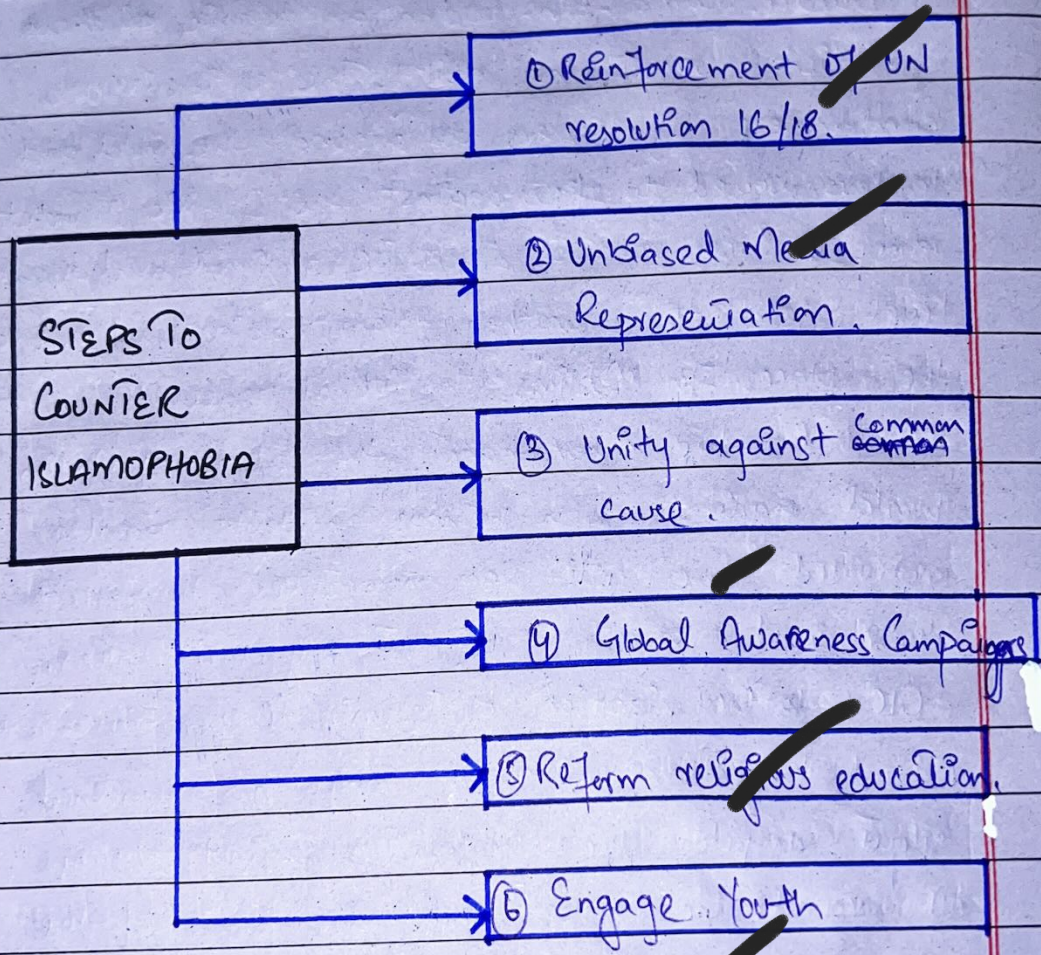 STEPS TO
COUNTER
ISLAMOPHOBIA
① Reinforcement of UN
resolution 16/18.
② Unbiased Media
Representation.
③ Unity against common
cause.
④ Global Awareness Campaigns
⑤ Reform religious education.
⑥ Engage Youth